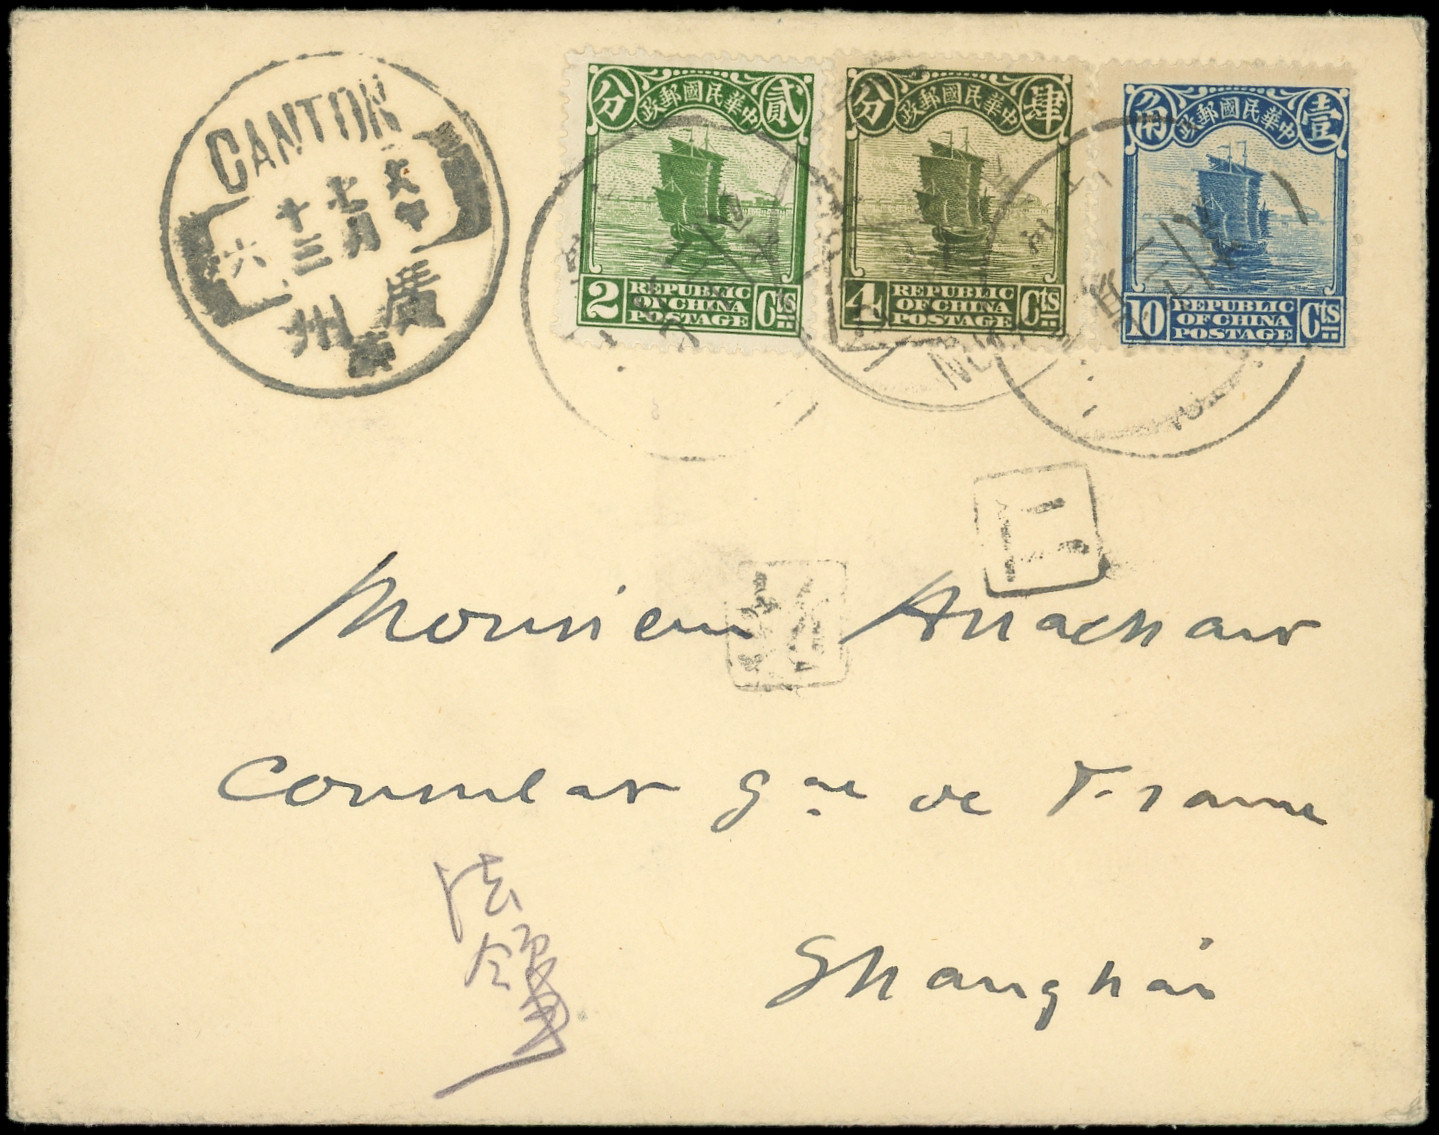 CANTON
六 十三 七月 六年
廣州
分 中華民國郵政 貳
2 REPUBLIC OF CHINA POSTAGE Cts
分 中華民國郵政 肆
4 REPUBLIC OF CHINA POSTAGE Cts
角 中華民國郵政 壹
10 REPUBLIC OF CHINA POSTAGE Cts
Monsieur
Consulat Gal de France
Shanghai
法
領